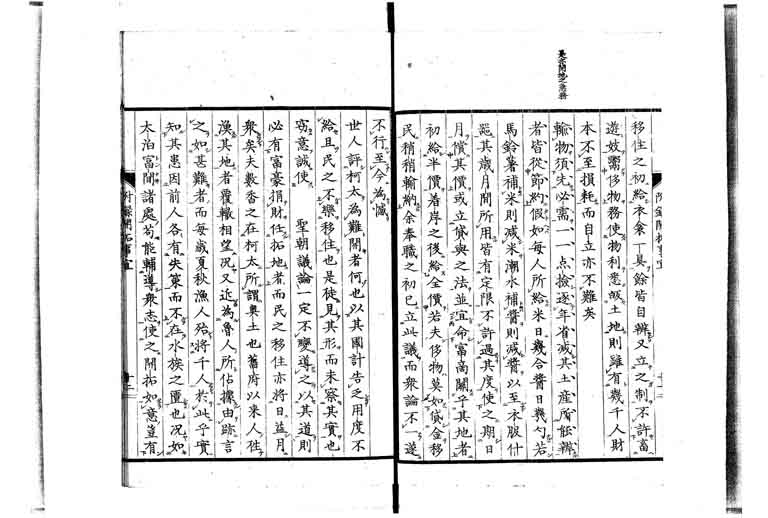 移住之初給衣食一具餘皆自辨又立之制不許畜
遊妓鬻侈物務使物利悉皈土地則雖有幾千人財
本不至損耗而自立亦不難矣
輸物須先必需一一点撿逐年省減其土産所能辨
者皆從節約假如每人所給米日幾合醬日幾勺若
馬鈴薯補米則減米潮水補醬則減醬以至衣服什
器其歳月間所用皆有定限不許過其度使之期日
月償其價或立貸與之法並宜命富高関乎其地者
初給半價着岸之後給全價若夫侈物莫如貸金移
民稍稍輸納余奉職之初已立此議而衆論不一遂
不行至今為憾
世人評柯太為難開者何也以其國計告乏用度不
給且民之不樂移住也是徒見其形而未察其實也
窃意誠使 聖朝議論一定不變導之以其道則
必有富豪捐財任拓地者而民之移住亦將日益月
衆矣夫數香之在柯太所謂奥土也舊府以来人徃
漁其地者覆轍相望况又近為魯人所佔據由跡言
之如甚難者而每歳夏秋漁人殆將千人於此乎實
知其患因前人各有失策而不在水族之匱也况如
太泊富問諸處苟能輔導衆志使之開拓如意豈有
附録開拓事宜
十二